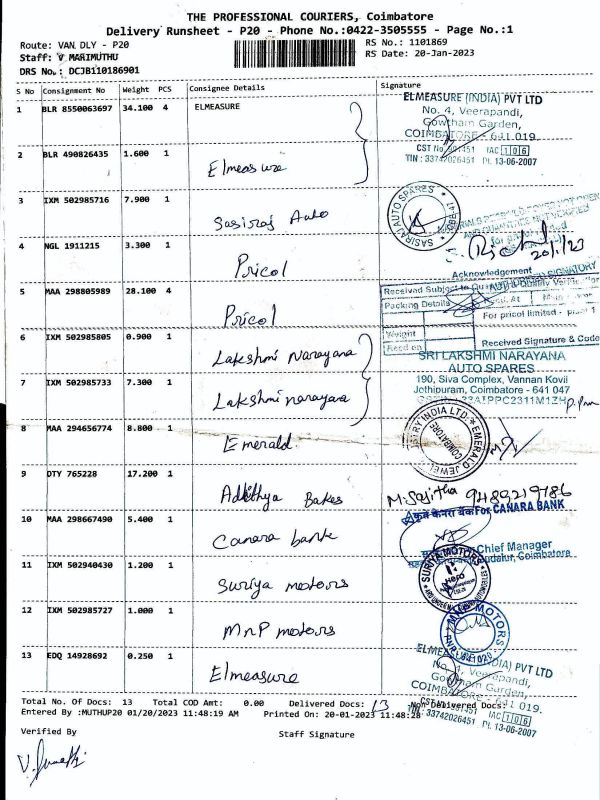 THE PROFESSIONAL COURIERS, Coimbatore
Delivery Runsheet - P20 - Phone No.:0422-3505555 - Page No.:1
Route: VAN DLY - P20
RS No.: 1101869
Staff: V MARIMUTHU
RS Date: 20-Jan-2023
DRS No.: DCJB110186901
S No Consignment No Weight PCS Consignee Details Signature
1 BLR 8550063697 34.100 4 ELMEASURE
ELMEASURE (INDIA) PVT LTD
No. 4, Veerapandi,
Gowtham Garden,
COIMBATORE - 641 019.
TIN : 33742026451 Dt. 13-06-2007
2 BLR 490826435 1.600 1
Elmeasure
3 IXM 502985716 7.900 1
Sasiraj Auto
SASIRAJ AUTO SPARES
4 NGL 1911215 3.300 1
Pricol
20/1/23
Acknowledgement
AUTHORISED SIGNATORY
5 MAA 298805989 28.100 4
Pricol
Received Subject to
Packing Details
For pricol limited - plant 1
Weight
Received Signature & Code
6 IXM 502985805 0.900 1
Lakshmi Narayana
SRI LAKSHMI NARAYANA
AUTO SPARES
7 IXM 502985733 7.300 1
Lakshmi narayana
190, Siva Complex, Vannan Kovil
Jothipuram, Coimbatore - 641 047
8 MAA 294656774 8.800 1
Emerald
EMERALD JEWEL INDUSTRY INDIA LTD.
COIMBATORE
9 DTY 765228 17.200 1
Adhithya Bakes
M. Sajitha 9489219786
10 MAA 298667490 5.400 1
Canara bank
कृते केनरा बैंक For CANARA BANK
Chief Manager
Coimbatore
11 IXM 502940430 1.200 1
Suriya motors
SURIYA MOTORS
Hero
12 IXM 502985727 1.000 1
MnP motors
MNP MOTORS
13 EDQ 14928692 0.250 1
Elmeasure
ELMEASURE (INDIA) PVT LTD
No. 4, Veerapandi,
Gowtham Garden,
COIMBATORE - 641 019.
TIN : 33742026451 Dt. 13-06-2007
Total No. Of Docs: 13 Total COD Amt: 0.00 Delivered Docs: 13 Non Delivered Docs:
Entered By :MUTHUP20 01/20/2023 11:48:19 AM Printed On: 20-01-2023 11:48:28
Verified By
Staff Signature